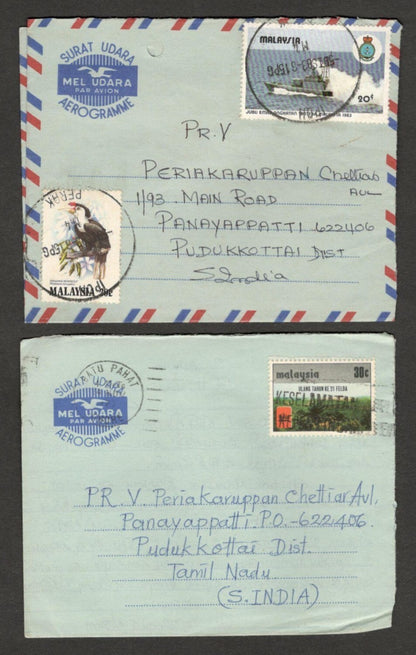 SURAT UDARA
MEL UDARA
PAR AVION
AEROGRAMME
MALAYSIA
20¢
PR.V
PERIAKARUPPAN Chettiar
AVL
1/93. MAIN ROAD
PANAYAPPATTI 622406
PUDUKKOTTAI DIST
S.India
PERAK
MALAYSIA 20¢
BATU PAHAT
SURAT UDARA
MEL UDARA
PAR AVION
AEROGRAMME
malaysia 30¢
ULANG TAHUN KE 21 FELDA
KESELAMATAN
PR.V. Periakaruppan Chettiar Avl,
Panayappatti P.O.-622406.
Pudukkottai Dist.
Tamil Nadu
(S.INDIA)